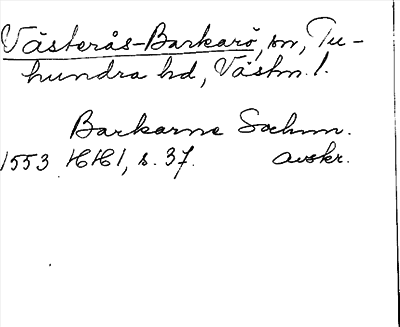 Västerås-Barkarö, sn, Tu-
hundra hd, Västm. l.
Barkarne Sochnn.
1553 HH1, s. 37. avskr.